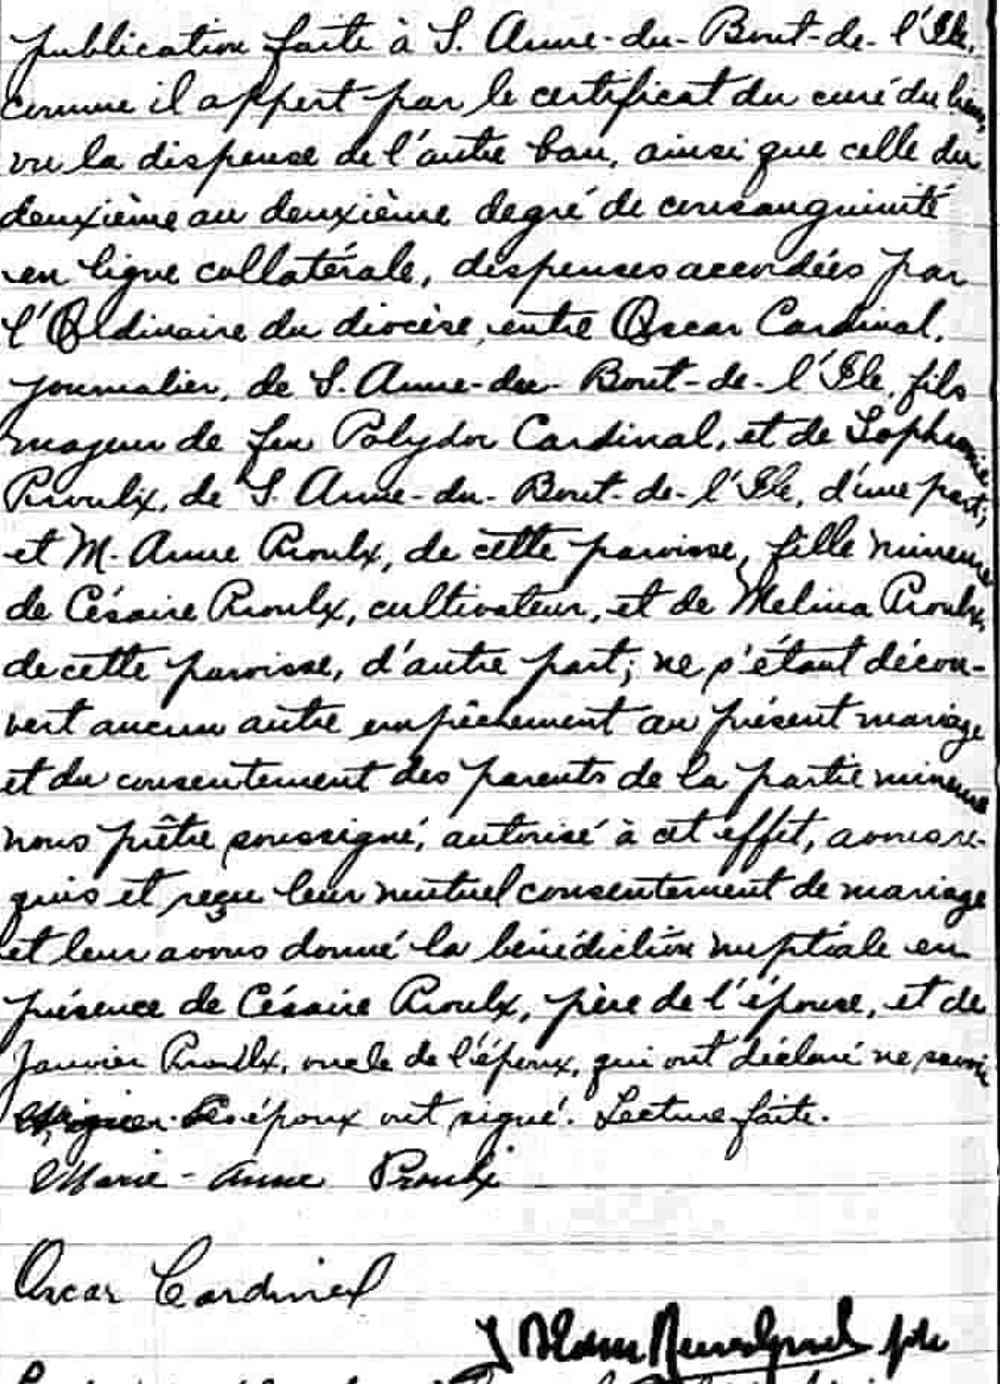 publication faite à S. Anne-du-Bout-de-l'Ile,
comme il appert par le certificat du curé du lieu,
vu la dispense de l'autre ban, ainsi que celle du
deuxième au deuxième degré de consanguinité
en ligne collatérale, dispenses accordées par
l'Ordinaire du diocèse, entre Oscar Cardinal,
journalier, de S. Anne-du-Bout-de-l'Ile, fils
majeur de feu Polydor Cardinal, et de Sophronie
Proulx, de S. Anne-du-Bout-de-l'Ile, d'une part;
et M. Anne Proulx, de cette paroisse, fille mineure
de Césaire Proulx, cultivateur, et de Melina Proulx,
de cette paroisse, d'autre part; ne s'étant décou-
vert aucun autre empêchement au présent mariage
et du consentement des parents de la partie mineure
nous prêtre soussigné, autorisé à cet effet, avons re-
quis et reçu leur mutuel consentement de mariage
et leur avons donné la bénédiction nuptiale en
présence de Césaire Proulx, père de l'épouse, et de
Janvier Proulx, oncle de l'époux, qui ont déclaré ne savoir
signer. Les époux ont signé. Lecture faite.
Marie-Anne Proulx
Oscar Cardinal
ptre